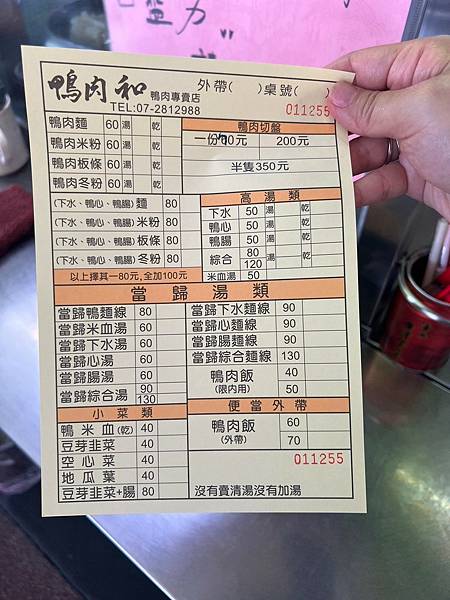 鴨肉和 鴨肉專賣店 外帶( )桌號( )
TEL:07-2812988 011255
鴨肉麵 60 湯 乾
鴨肉米粉 60 湯 乾
鴨肉板條 60 湯 乾
鴨肉冬粉 60 湯 乾
鴨肉切盤
200元
半隻350元
(下水、鴨心、鴨腸)麵 80
(下水、鴨心、鴨腸)米粉 80
(下水、鴨心、鴨腸)板條 80
(下水、鴨心、鴨腸)冬粉 80
以上擇其一80元,全加100元
高湯類
下水 50 湯 乾
鴨心 50 湯 乾
鴨腸 50 湯 乾
綜合 80 120 湯 乾
米血湯 50
當歸湯類
當歸鴨麵線 80
當歸米血湯 60
當歸下水湯 60
當歸心湯 60
當歸腸湯 60
當歸綜合湯 90 130
當歸下水麵線 90
當歸心麵線 90
當歸腸麵線 90
當歸綜合麵線 130
鴨肉飯 40
(限內用) 50
小菜類
鴨米血(乾) 40
豆芽韭菜 40
空心菜 40
地瓜葉 40
豆芽韭菜+腸 80
便當外帶
鴨肉飯 60
(外帶) 70
011255
沒有賣清湯沒有加湯